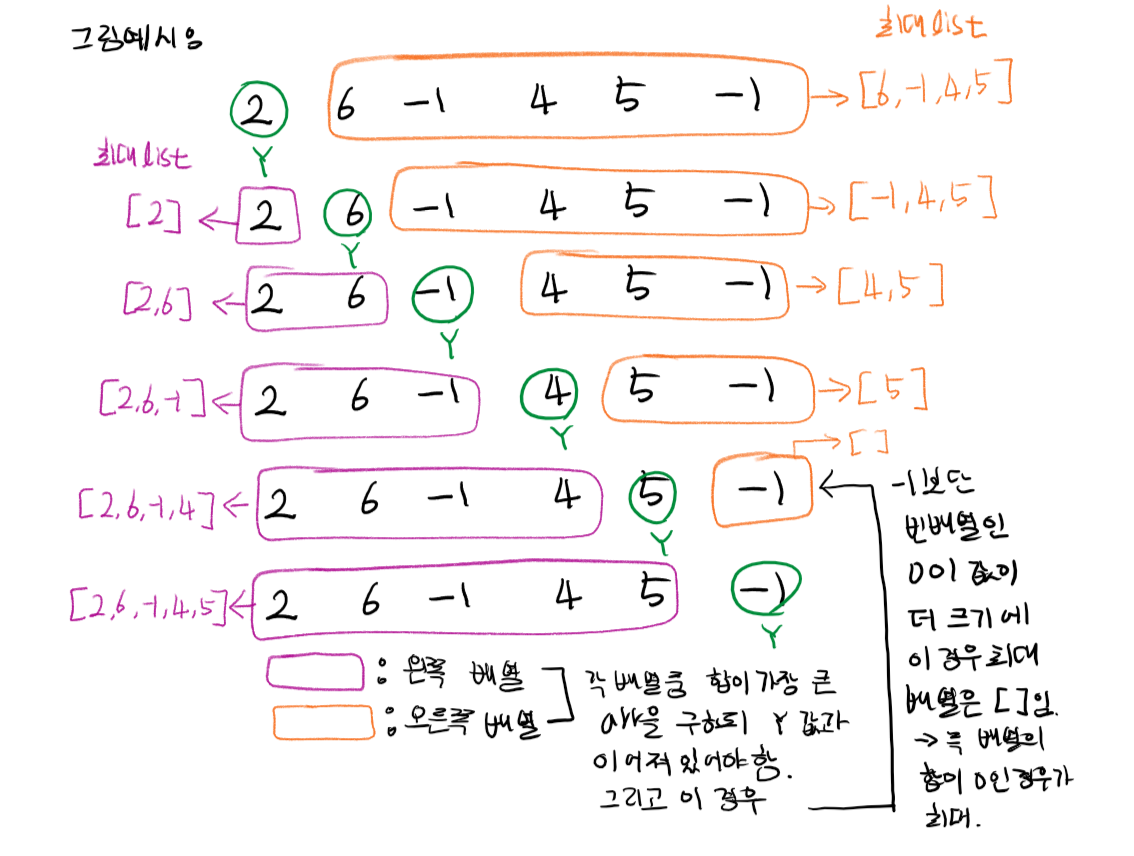 그림예시용
최대 list
2 6 -1 4 5 -1 → [6,-1,4,5]
Y
최대 list
[2] ← 2 6 -1 4 5 -1 → [-1,4,5]
Y
[2,6] ← 2 6 -1 4 5 -1 → [4,5]
Y
[2,6,-1] ← 2 6 -1 4 5 -1 → [5]
Y
→ []
[2,6,-1,4] ← 2 6 -1 4 5 -1
Y
[2,6,-1,4,5] ← 2 6 -1 4 5 -1
Y
: 왼쪽 배열
: 오른쪽 배열
각 배열중 합이 가장 큰
arr을 구하되 Y 값과
이어져 있어야 함.
그리고 이 경우
-1보단
빈배열인
0이 값이
더 크기에
이 경우 최대
배열은 []임.
→ 즉 배열의
합이 0인 경우가
최대.